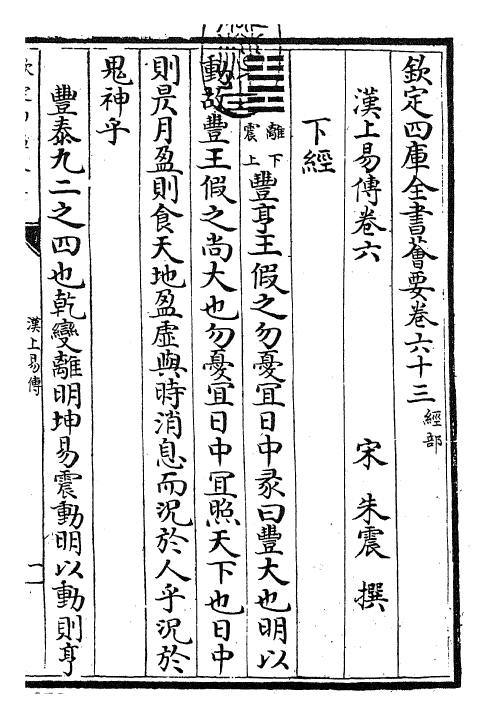 欽定四庫全書薈要卷六十三 經部
漢上易傳卷六 宋 朱震 撰
下經
離下
震上
豐亨王假之勿憂冝日中彖曰豐大也明以
動故豐王假之尚大也勿憂冝日中冝照天下也日中
則昃月盈則食天地盈虛與時消息而況於人乎況於
鬼神乎
豐泰九二之四也乾變離明坤易震動明以動則亨
漢上易傳
一